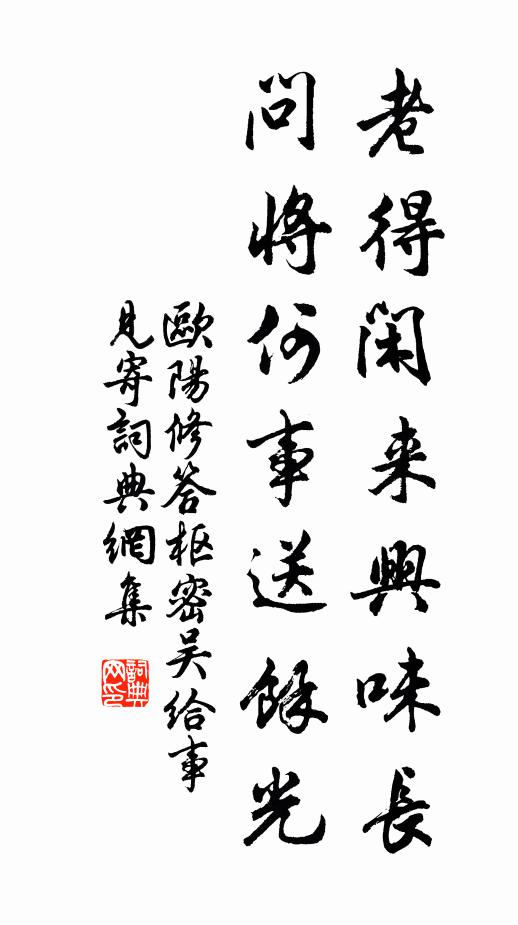 老得閑来興味長
問將何事送餘光
歐陽修答枢密吴给事
見寄詞典網集
詞典
网印